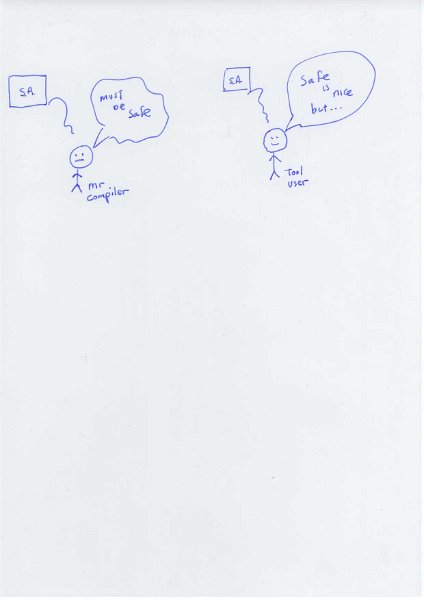 S.A.
must
be
safe
mr
compiler
S.A.
Safe
is
nice
but...
Tool
user